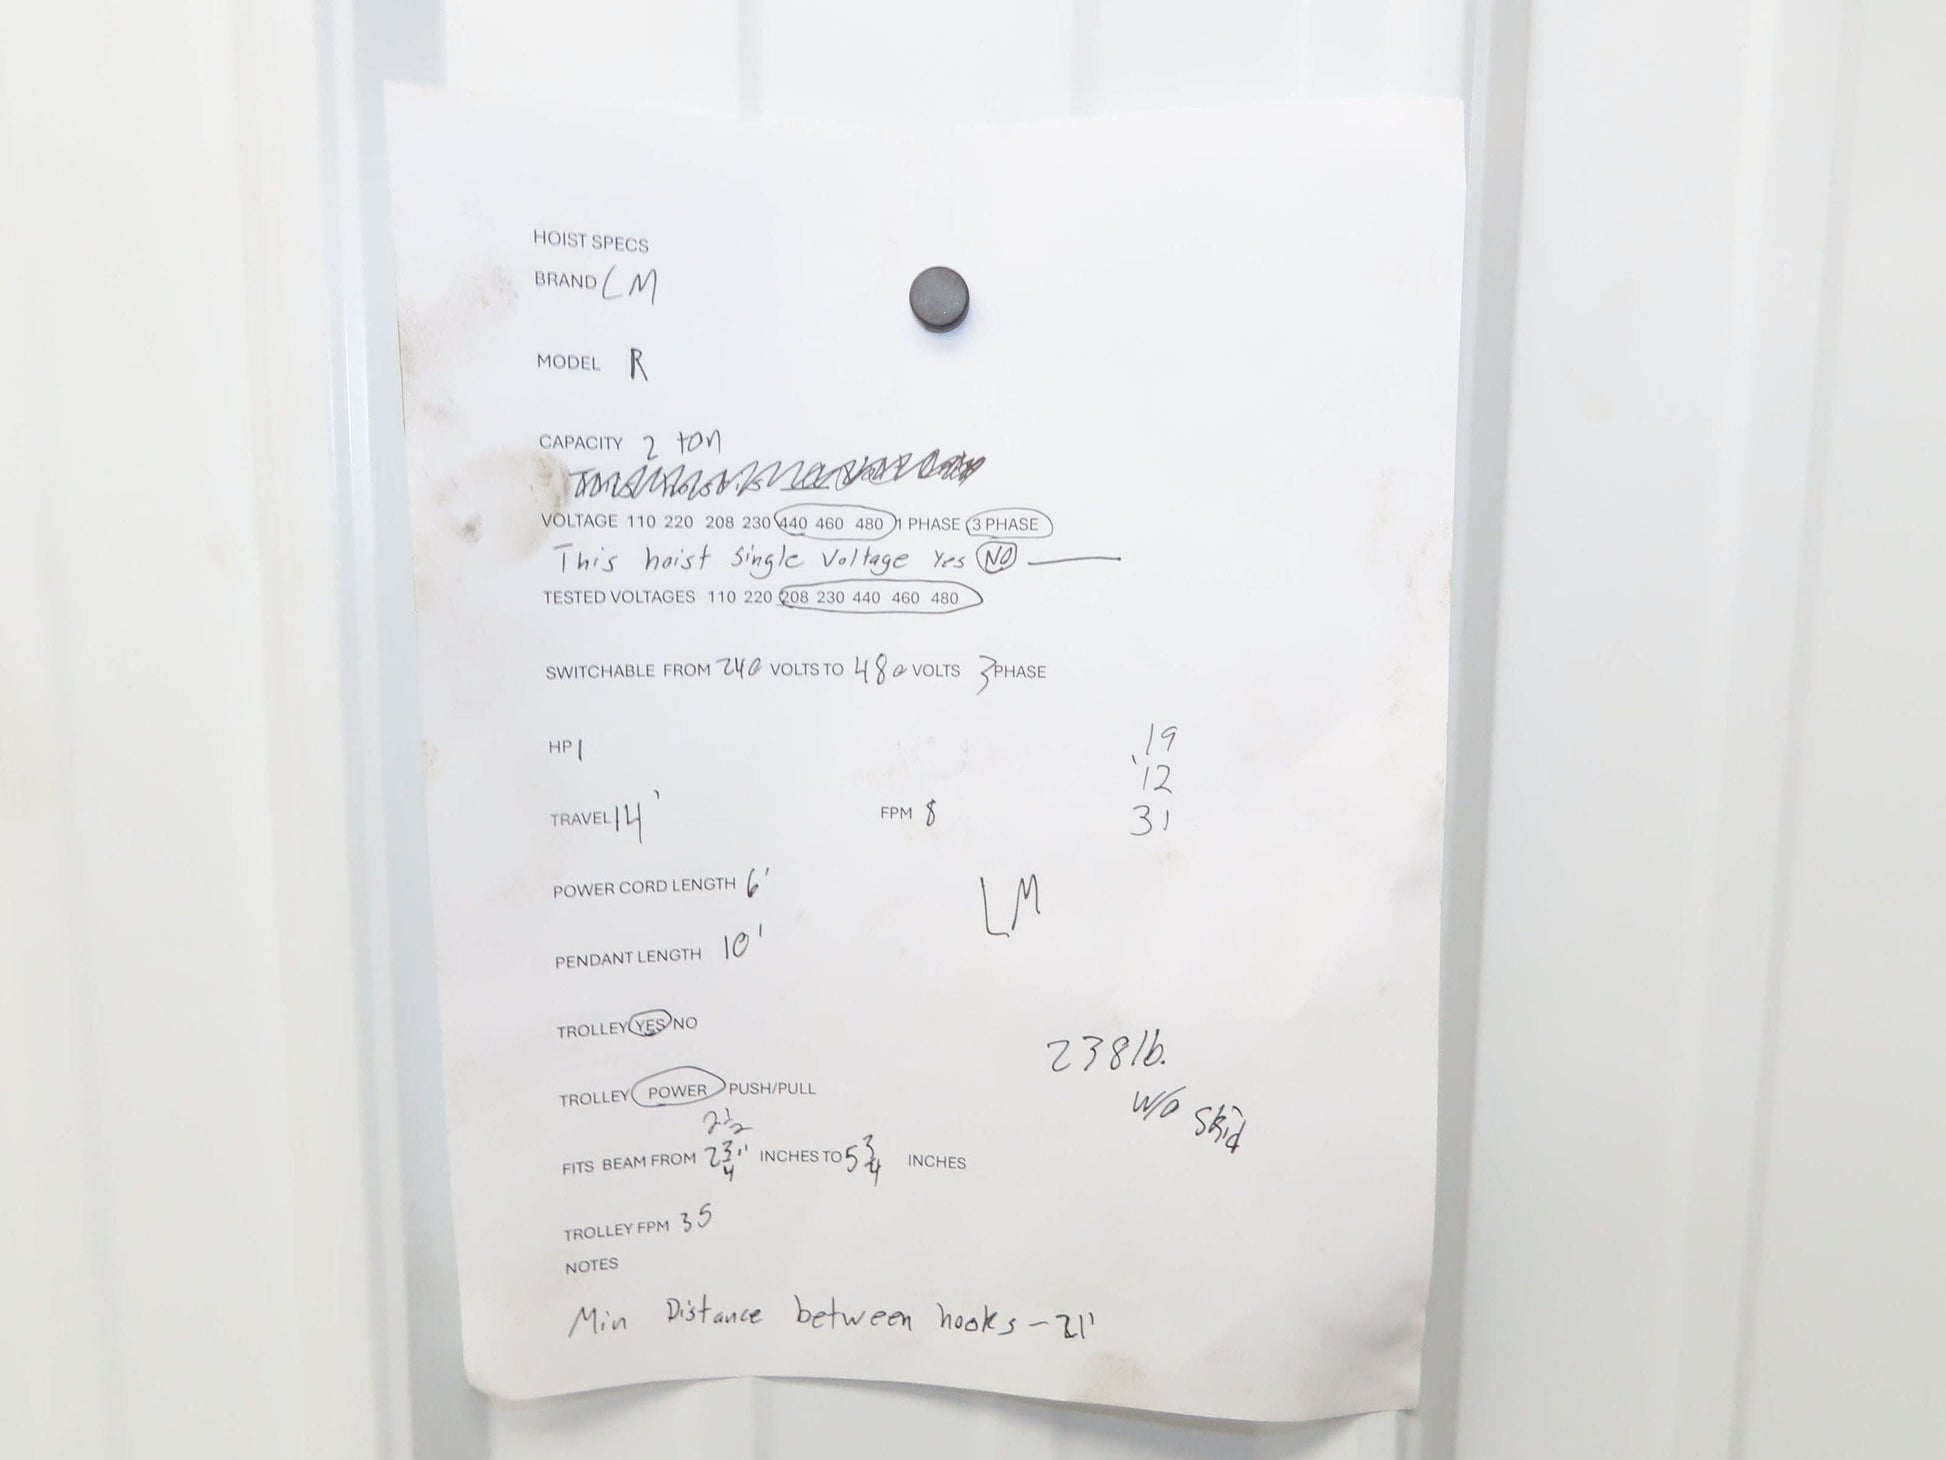 HOIST SPECS
BRAND LM
MODEL R
CAPACITY 2 ton
VOLTAGE 110 220 208 230 440 460 480 1 PHASE 3 PHASE
This hoist Single Voltage Yes NO
TESTED VOLTAGES 110 220 208 230 440 460 480
SWITCHABLE FROM 240 VOLTS TO 480 VOLTS 3 PHASE
HP 1
19
12
31
TRAVEL 14' FPM 8
POWER CORD LENGTH 6'
LM
PENDANT LENGTH 10'
TROLLEY YES NO
238 lb.
w/o Skid
TROLLEY POWER PUSH/PULL
2 1/2
FITS BEAM FROM 2 3/4" INCHES TO 5 3/4 INCHES
TROLLEY FPM 35
NOTES
Min Distance between hooks - 21'